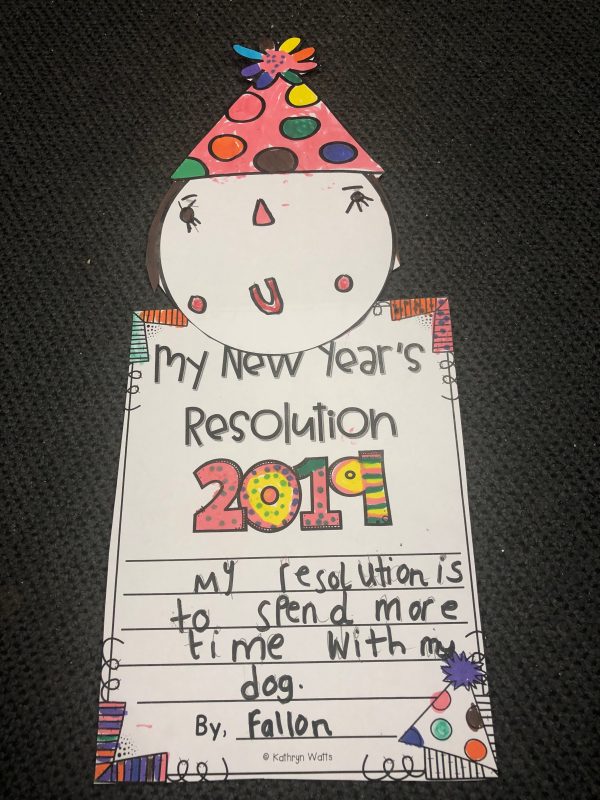 My New Year's
Resolution
2019
My resolution is
to spend more
time with my
dog.
By, Fallon
© Kathryn Watts